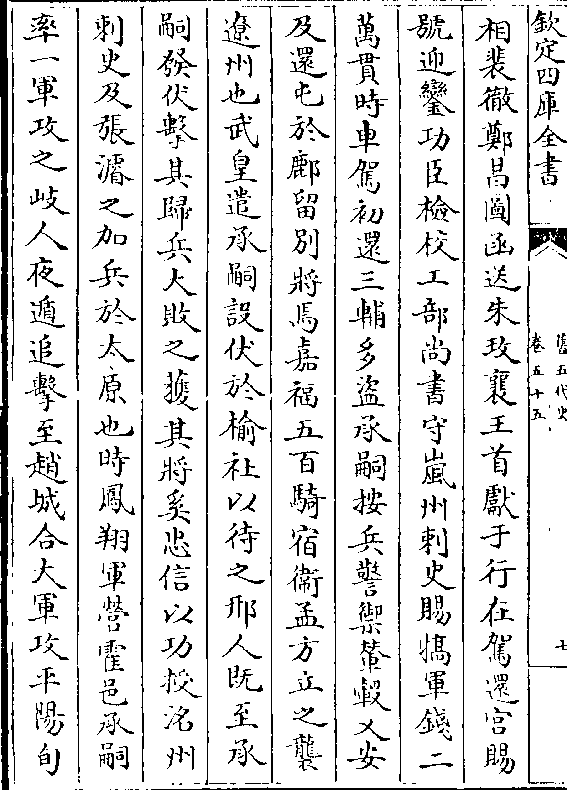 欽定四庫全書
舊五代史
卷五十五
七
相裴徹鄭昌圖函送朱玫襄王首獻于行在駕還宮賜
號迎鑾功臣檢校工部尚書守嵐州刺史賜犒軍錢二
萬貫時車駕初還三輔多盜承嗣按兵警禦輦轂乂安
及還屯於鄜留別將馬嘉福五百騎宿衛孟方立之襲
遼州也武皇遣承嗣設伏於榆社以待之邢人既至承
嗣發伏擊其歸兵大敗之獲其將奚忠信以功授洺州
刺史及張濬之加兵於太原也時鳳翔軍營霍邑承嗣
率一軍攻之岐人夜遁追擊至趙城合大軍攻平陽旬